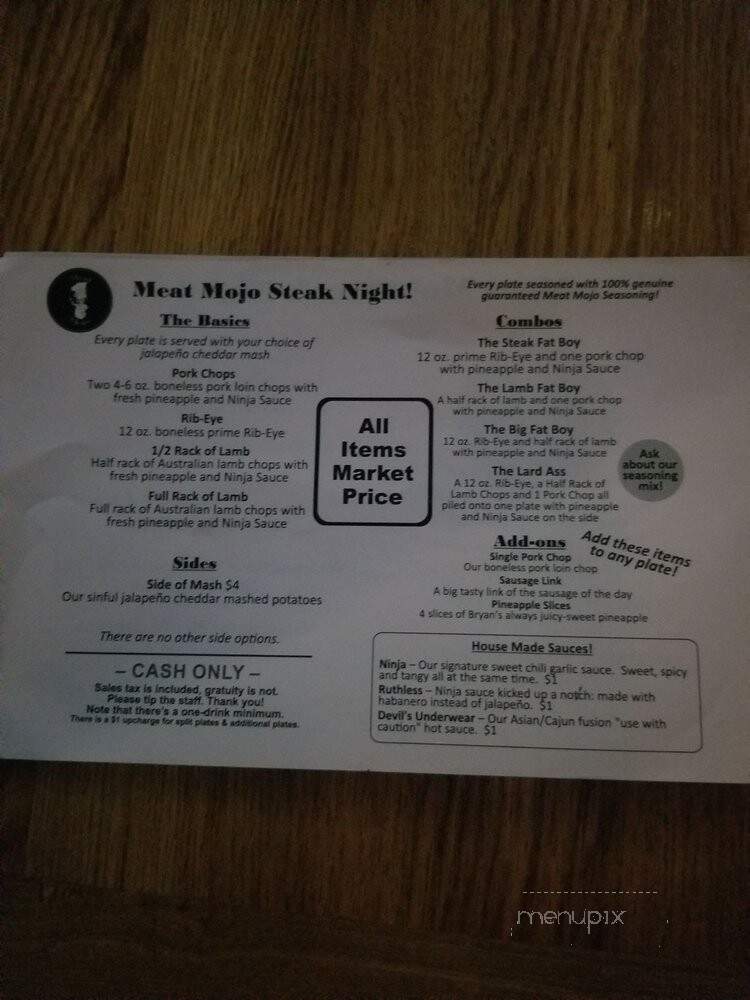 Meat Mojo Steak Night!
Every plate seasoned with 100% genuine
guaranteed Meat Mojo Seasoning!
The Basics
Every plate is served with your choice of
jalapeño cheddar mash
Pork Chops
Two 4-6 oz. boneless pork loin chops with
fresh pineapple and Ninja Sauce
Rib-Eye
12 oz. boneless prime Rib-Eye
1/2 Rack of Lamb
Half rack of Australian lamb chops with
fresh pineapple and Ninja Sauce
Full Rack of Lamb
Full rack of Australian lamb chops with
fresh pineapple and Ninja Sauce
Sides
Side of Mash $4
Our sinful jalapeño cheddar mashed potatoes
There are no other side options.
– CASH ONLY –
Sales tax is included, gratuity is not.
Please tip the staff. Thank you!
Note that there's a one-drink minimum.
There is a $1 upcharge for split plates & additional plates.
All
Items
Market
Price
Combos
The Steak Fat Boy
12 oz. prime Rib-Eye and one pork chop
with pineapple and Ninja Sauce
The Lamb Fat Boy
A half rack of lamb and one pork chop
with pineapple and Ninja Sauce
The Big Fat Boy
12 oz. Rib-Eye and half rack of lamb
with pineapple and Ninja Sauce
The Lard Ass
A 12 oz. Rib-Eye, a Half Rack of
Lamb Chops and 1 Pork Chop all
piled onto one plate with pineapple
and Ninja Sauce on the side
Ask
about our
seasoning
mix!
Add-ons
Add these items
to any plate!
Single Pork Chop
Our boneless pork loin chop
Sausage Link
A big tasty link of the sausage of the day
Pineapple Slices
4 slices of Bryan's always juicy-sweet pineapple
House Made Sauces!
Ninja – Our signature sweet chili garlic sauce. Sweet, spicy
and tangy all at the same time. $1
Ruthless – Ninja sauce kicked up a notch: made with
habanero instead of jalapeño. $1
Devil's Underwear – Our Asian/Cajun fusion "use with
caution" hot sauce. $1
menupix